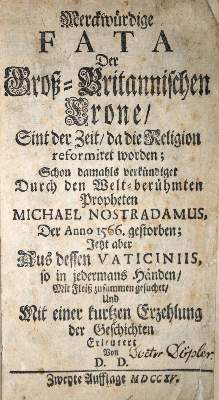 Merckwürdige
FATA
Der
Groß-Britannischen
Crone/
Sint der Zeit/ da die Religion
reformiret worden;
Schon damahls verkündiget
Durch den Welt-berühmten
Propheten
MICHAEL NOSTRADAMUS,
Der Anno 1566. gestorben;
Jetzt aber
Aus dessen VATICINIIS,
so in jedermans Händen/
Mit Fleiß zusammen gesuchet/
Und
Mit einer kurtzen Erzehlung
der Geschichten
Erleutert
Von
D. D.
Zweyte Aufflage MDCCXV.